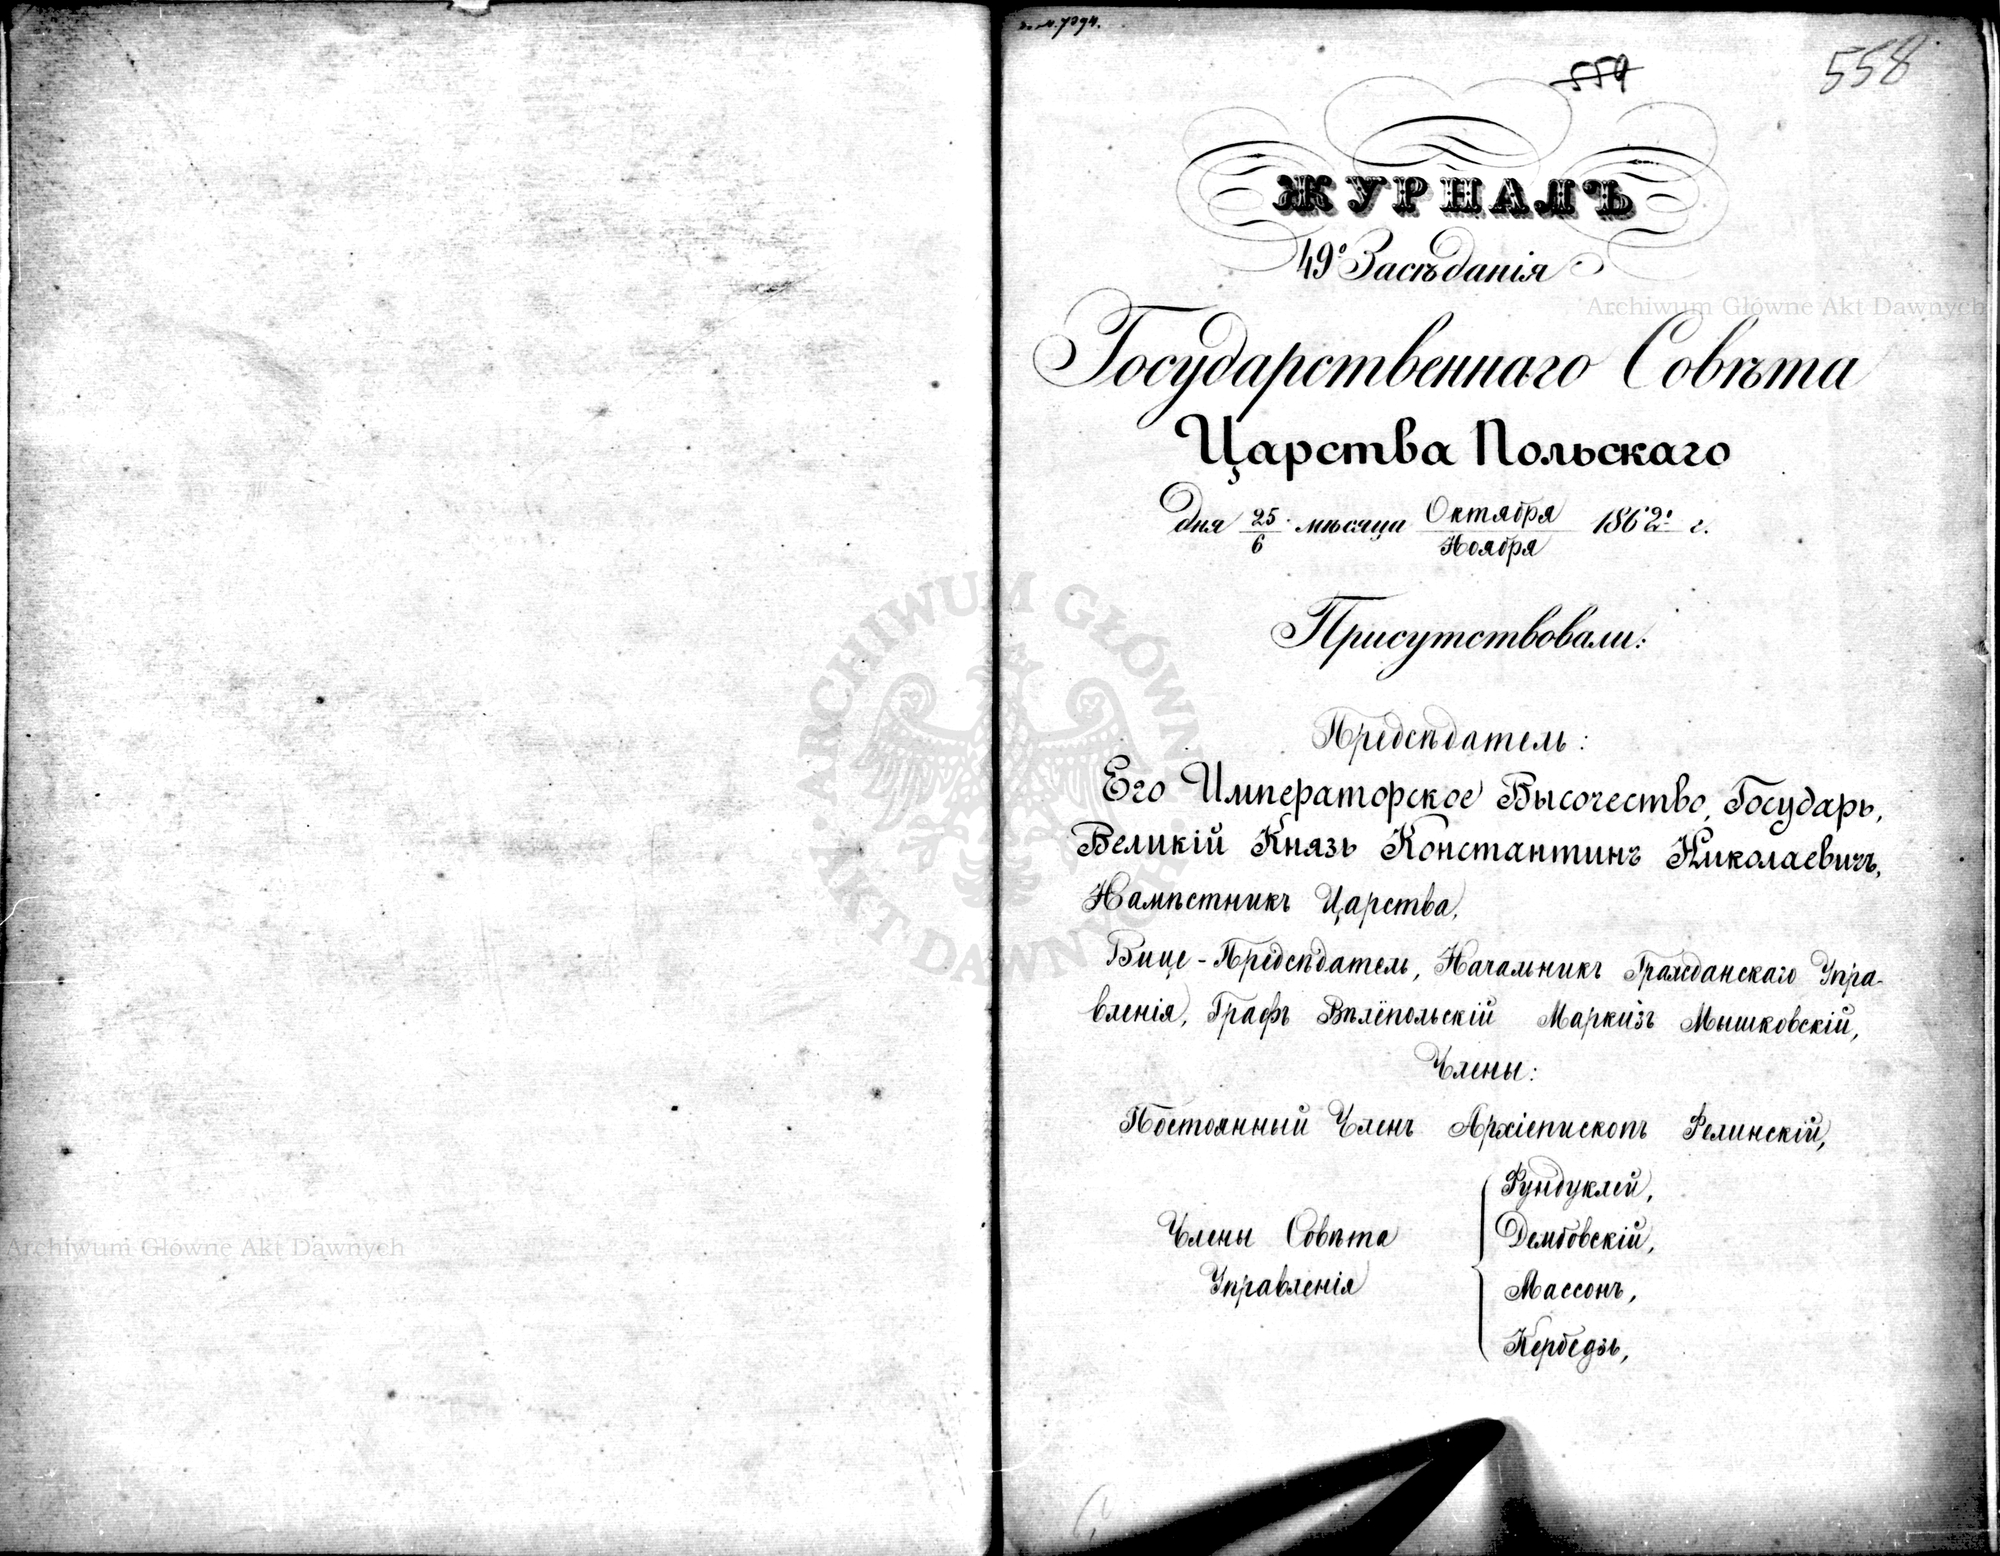 558
559
ЖУРНАЛЪ
49º Засѣданія
Государственнаго Совѣта
Царства Польскаго
дня 25/6 мѣсяца Октября/Ноября 1862 г.
Присутствовали:
Предсѣдатель:
Его Императорское Высочество, Государь,
Великій Князь Константинъ Николаевичъ,
Намѣстникъ Царства,
Вице-Предсѣдатель, Начальникъ Гражданскаго Упра-
вленія, Графъ Вѣлёпольскій Маркизъ Мышковскій,
Члены:
Постоянный Членъ Архіепископъ Фелинскій,
Члены Совѣта
Управленія
Фундуклей,
Дембовскій,
Массонъ,
Кербедзъ,
Archiwum Główne Akt Dawnych
Archiwum Główne Akt Dawnych
ARCHIWUM GŁÓWNE AKT DAWNYCH